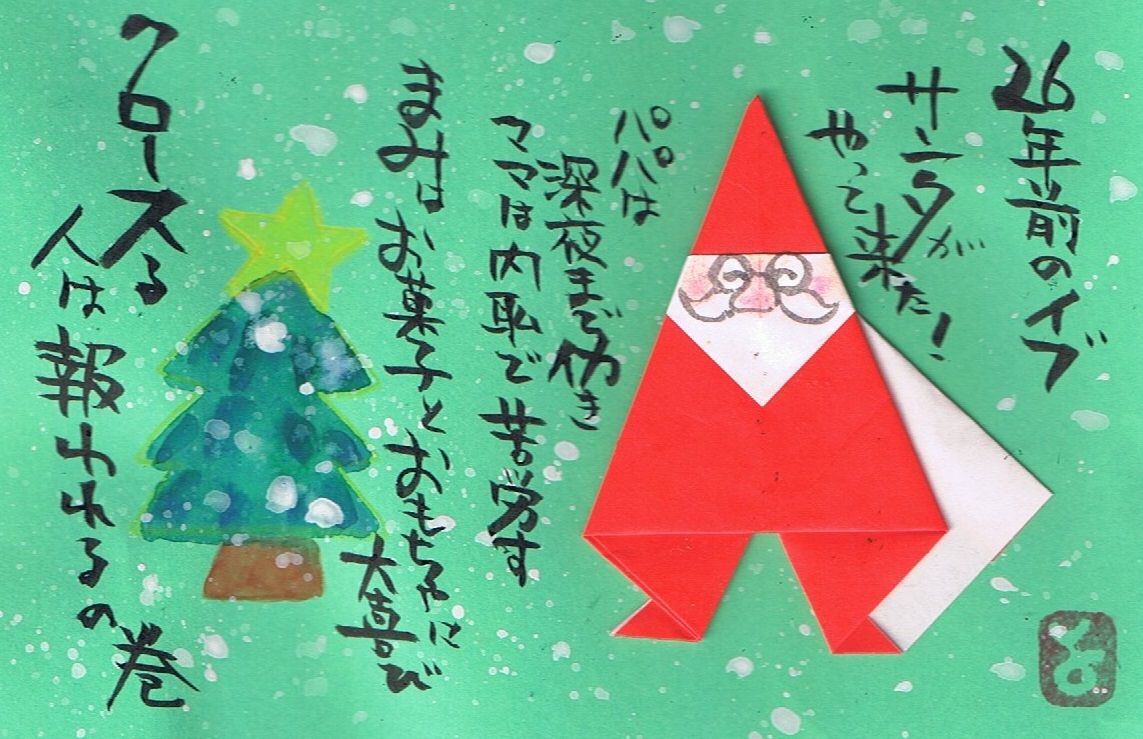 26年前のイブ
サンタが
やって来た!
パパは
深夜まで働き
ママは内恥で苦労す
まみはお菓子とおもちゃに
大喜び
クロースる
人は報われるの
巻